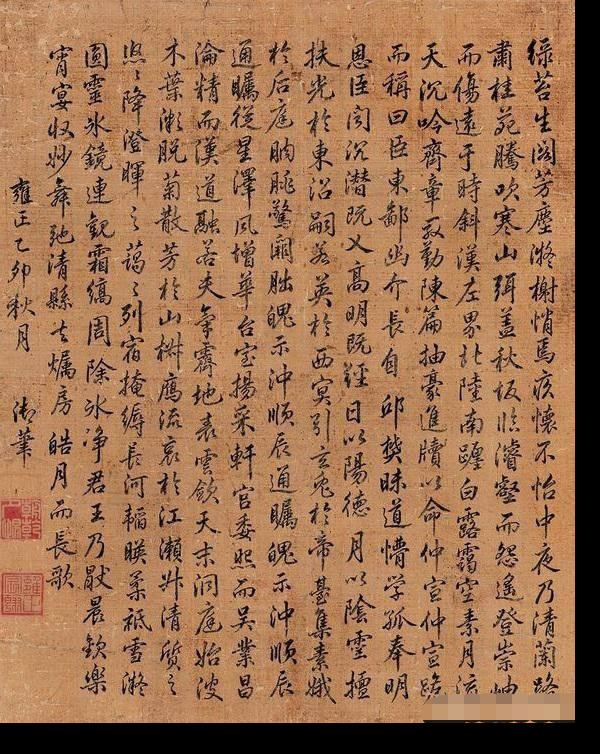 綠苔生閣芳塵凝榭悄焉疚懷不怡中夜乃清蘭路
肅桂苑騰吹寒山弭蓋秋坂臨濬壑而怨遙登崇岫
而傷遠于時斜漢左界北陸南躔白露靄空素月流
天沉吟齊章殷勤陳篇抽毫進牘以命仲宣仲宣跪
而稱曰臣東鄙幽介長自邱樊昧道懵學孤奉明
恩臣聞沉潛既乂高明既經日以陽德月以陰靈擅
扶光於東沼嗣若英於西冥引玄兔於帝臺集素娥
於后庭朒朓警闕朏魄示沖順辰通矚魄示沖順辰
通矚從星澤風增華台室揚采軒宮委照而吳業昌
淪精而漢道融若夫氣霽地表雲斂天末洞庭始波
木葉漸脫菊散芳於山樹鴈流哀於江瀨升清質之
悠々降澄暉之藹々列宿掩縟長河韜暎柔祇雪凝
圓靈氷鏡連觀霜縞周除氷淨君王乃厭晨歡樂
宵宴收妙舞弛清縣去燭房皓月而長歌
雍正乙卯秋月 御筆